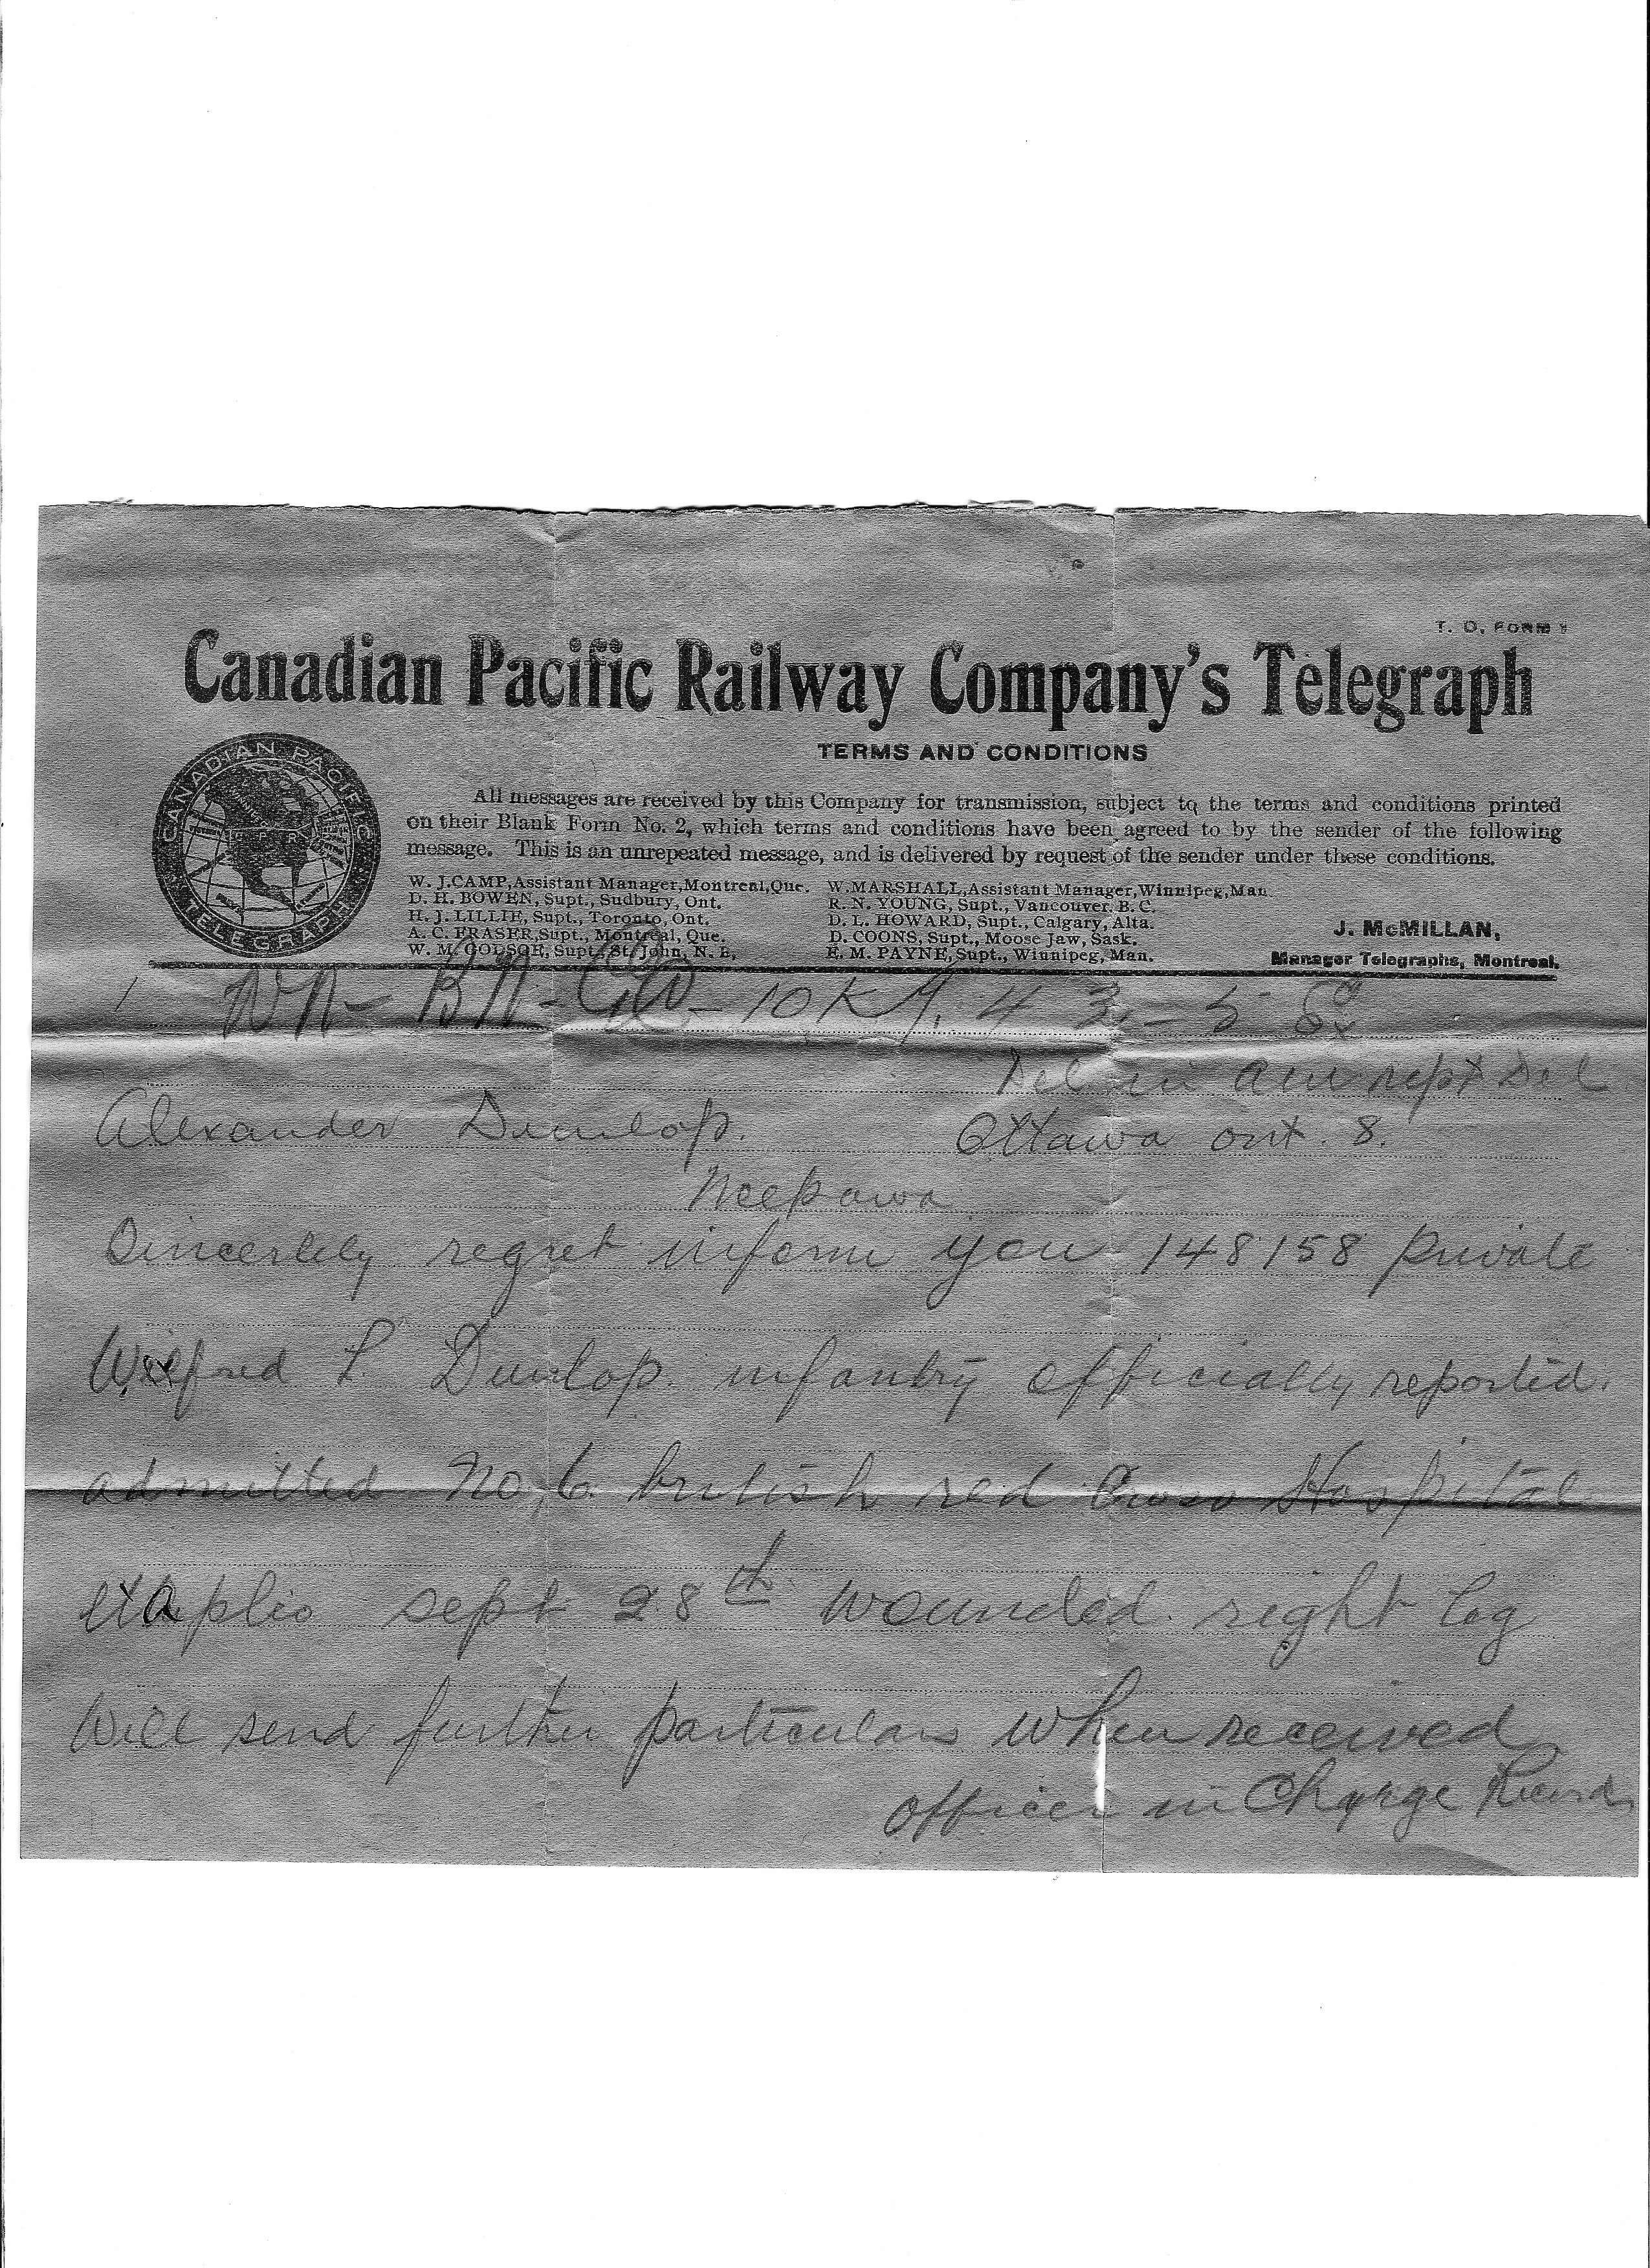 T. D. FORM 1
Canadian Pacific Railway Company's Telegraph
TERMS AND CONDITIONS
CANADIAN PACIFIC
TELEGRAPH
All messages are received by this Company for transmission, subject to the terms and conditions printed
on their Blank Form No. 2, which terms and conditions have been agreed to by the sender of the following
message. This is an unrepeated message, and is delivered by request of the sender under these conditions.
W. J. CAMP, Assistant Manager, Montreal, Que. W. MARSHALL, Assistant Manager, Winnipeg, Man.
D. H. BOWEN, Supt., Sudbury, Ont. R. N. YOUNG, Supt., Vancouver, B. C.
H. J. LILLIE, Supt., Toronto, Ont. D. L. HOWARD, Supt., Calgary, Alta.
A. C. FRASER, Supt., Montreal, Que. D. COONS, Supt., Moose Jaw, Sask.
W. M. GODSOE, Supt., St. John, N. B. E. M. PAYNE, Supt., Winnipeg, Man.
J. McMILLAN,
Manager Telegraphs, Montreal.
1 WN- BN- GW- 10 K 43-
Del rept Del
Alexander Dunlop. Ottawa ont. 8.
Neepawa
Sincerlely regret inform you 148158 private
Wilfred L Dunlop. infantry officially reported.
admitted No 6. british red Cross Hospital
etaplis sept 28th wounded. right leg
Will send further particulars when received
Officer in Charge Records